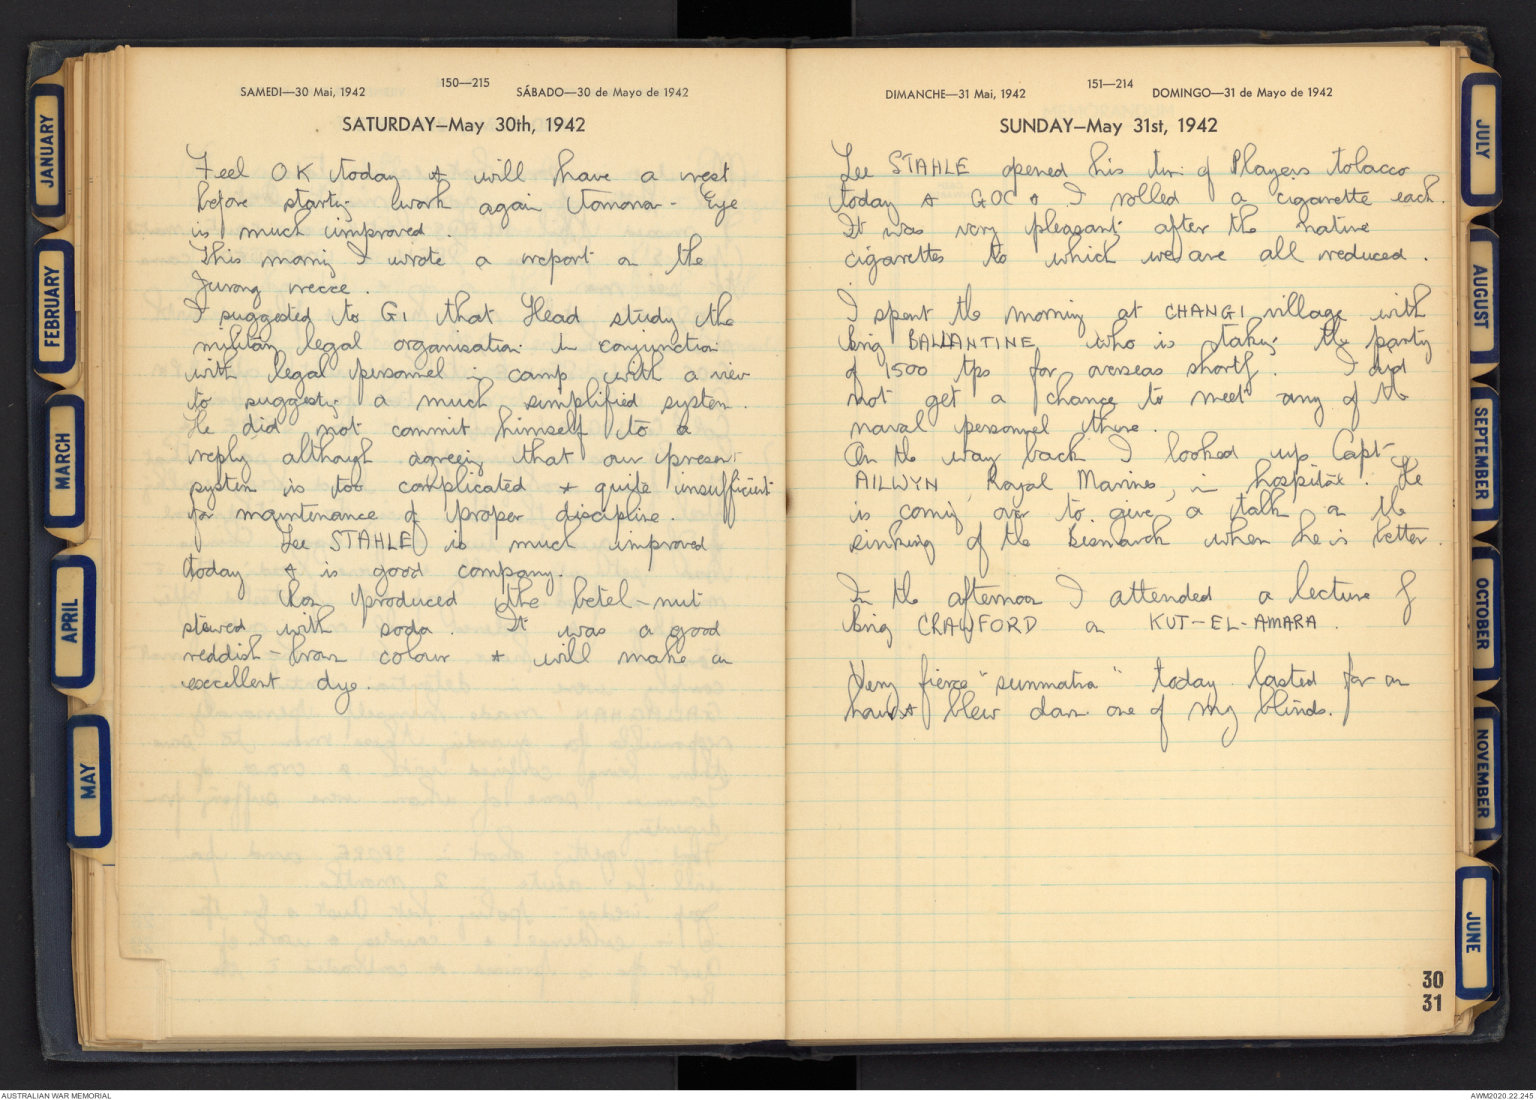 SAMEDI—30 Mai, 1942
150—215
SÁBADO—30 de Mayo de 1942
SATURDAY—May 30th, 1942
Feel OK today & will have a rest
before starting work again tomorrow. Eye
is much improved
This morning I wrote a report on the
Jurong recce.
I suggested to G1 that Head study the
military legal organisation in conjunction
with legal personnel in camp with a view
to suggesting a much simplified system.
He did not commit himself to a
reply although agreeing that our present
system is too complicated & quite insufficient
for maintenance of proper discipline.
Lee STAHLE is much improved
today & is good company.
produced the betel-nut
stewed with soda. It was a good
reddish-brown colour & will make an
excellent dye.
DIMANCHE—31 Mai, 1942
151—214
DOMINGO—31 de Mayo de 1942
SUNDAY—May 31st, 1942
Lee STAHLE opened his tin of Players tobacco
today & GOC & I rolled a cigarette each.
It was very pleasant after the native
cigarettes to which we are all reduced.
I spent the morning at CHANGI village with
Brig BALLANTINE who is taking the party
of 1500 tps for overseas shortly. I did
not get a chance to meet any of the
naval personnel there.
On the way back I looked up Capt
AILWYN, Royal Marines, in hospital. He
is coming over to give a talk on the
sinking of the Bismarck when he is better.
In the afternoon I attended a lecture of
Brig CRAWFORD on KUT-EL-AMARA.
Very fierce "sumatra" today lasted for an
hour & blew down one of my blinds.
JANUARY
FEBRUARY
MARCH
APRIL
MAY
JULY
AUGUST
SEPTEMBER
OCTOBER
NOVEMBER
JUNE
30
31
AUSTRALIAN WAR MEMORIAL
AWM2020.22.245